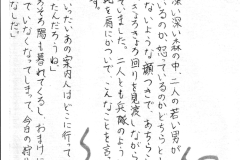 深い深い森の中、二人の若い男が
いるのか、怒っているのかどちらと
ないような顔つきで、あちらこち
ょろきょろ回りを見渡しながら
ていました。二人とも兵隊のよう
を肩にかついで、こんなことを言
いったいあの案内人はどこに行って
たんだろうね」
ろそろ陽も暮れてくるし、おまけに
ていなくなってしまう。今日の狩り
なしだ」